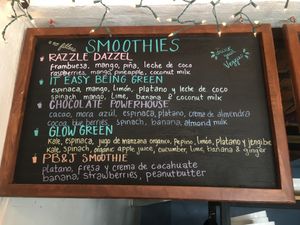 SMOOTHIES
RAZZLE DAZZEL
frambuesa, mango, piña, leche de coco
raspberries, mango, pineapple, coconut milk
IT EASY BEING GREEN
espinaca, mango, limón, platano y leche de coco
spinach, mango, lime, banana & coconut milk
CHOCOLATE POWERHOUSE
cacao, mora azul, espinaca, platano, crema de almendra
cacao, blueberries, spinach, banana, almond milk
GLOW GREEN
Kale, espinaca, jugo de manzana organico, Pepino, limón, platano y jengibre
kale, spinach, organic apple juice, cucumber, lime, banana & ginger
PB&J SMOOTHIE
platano, fresa y crema de cacahuate
banana, strawberries, peanutbutter